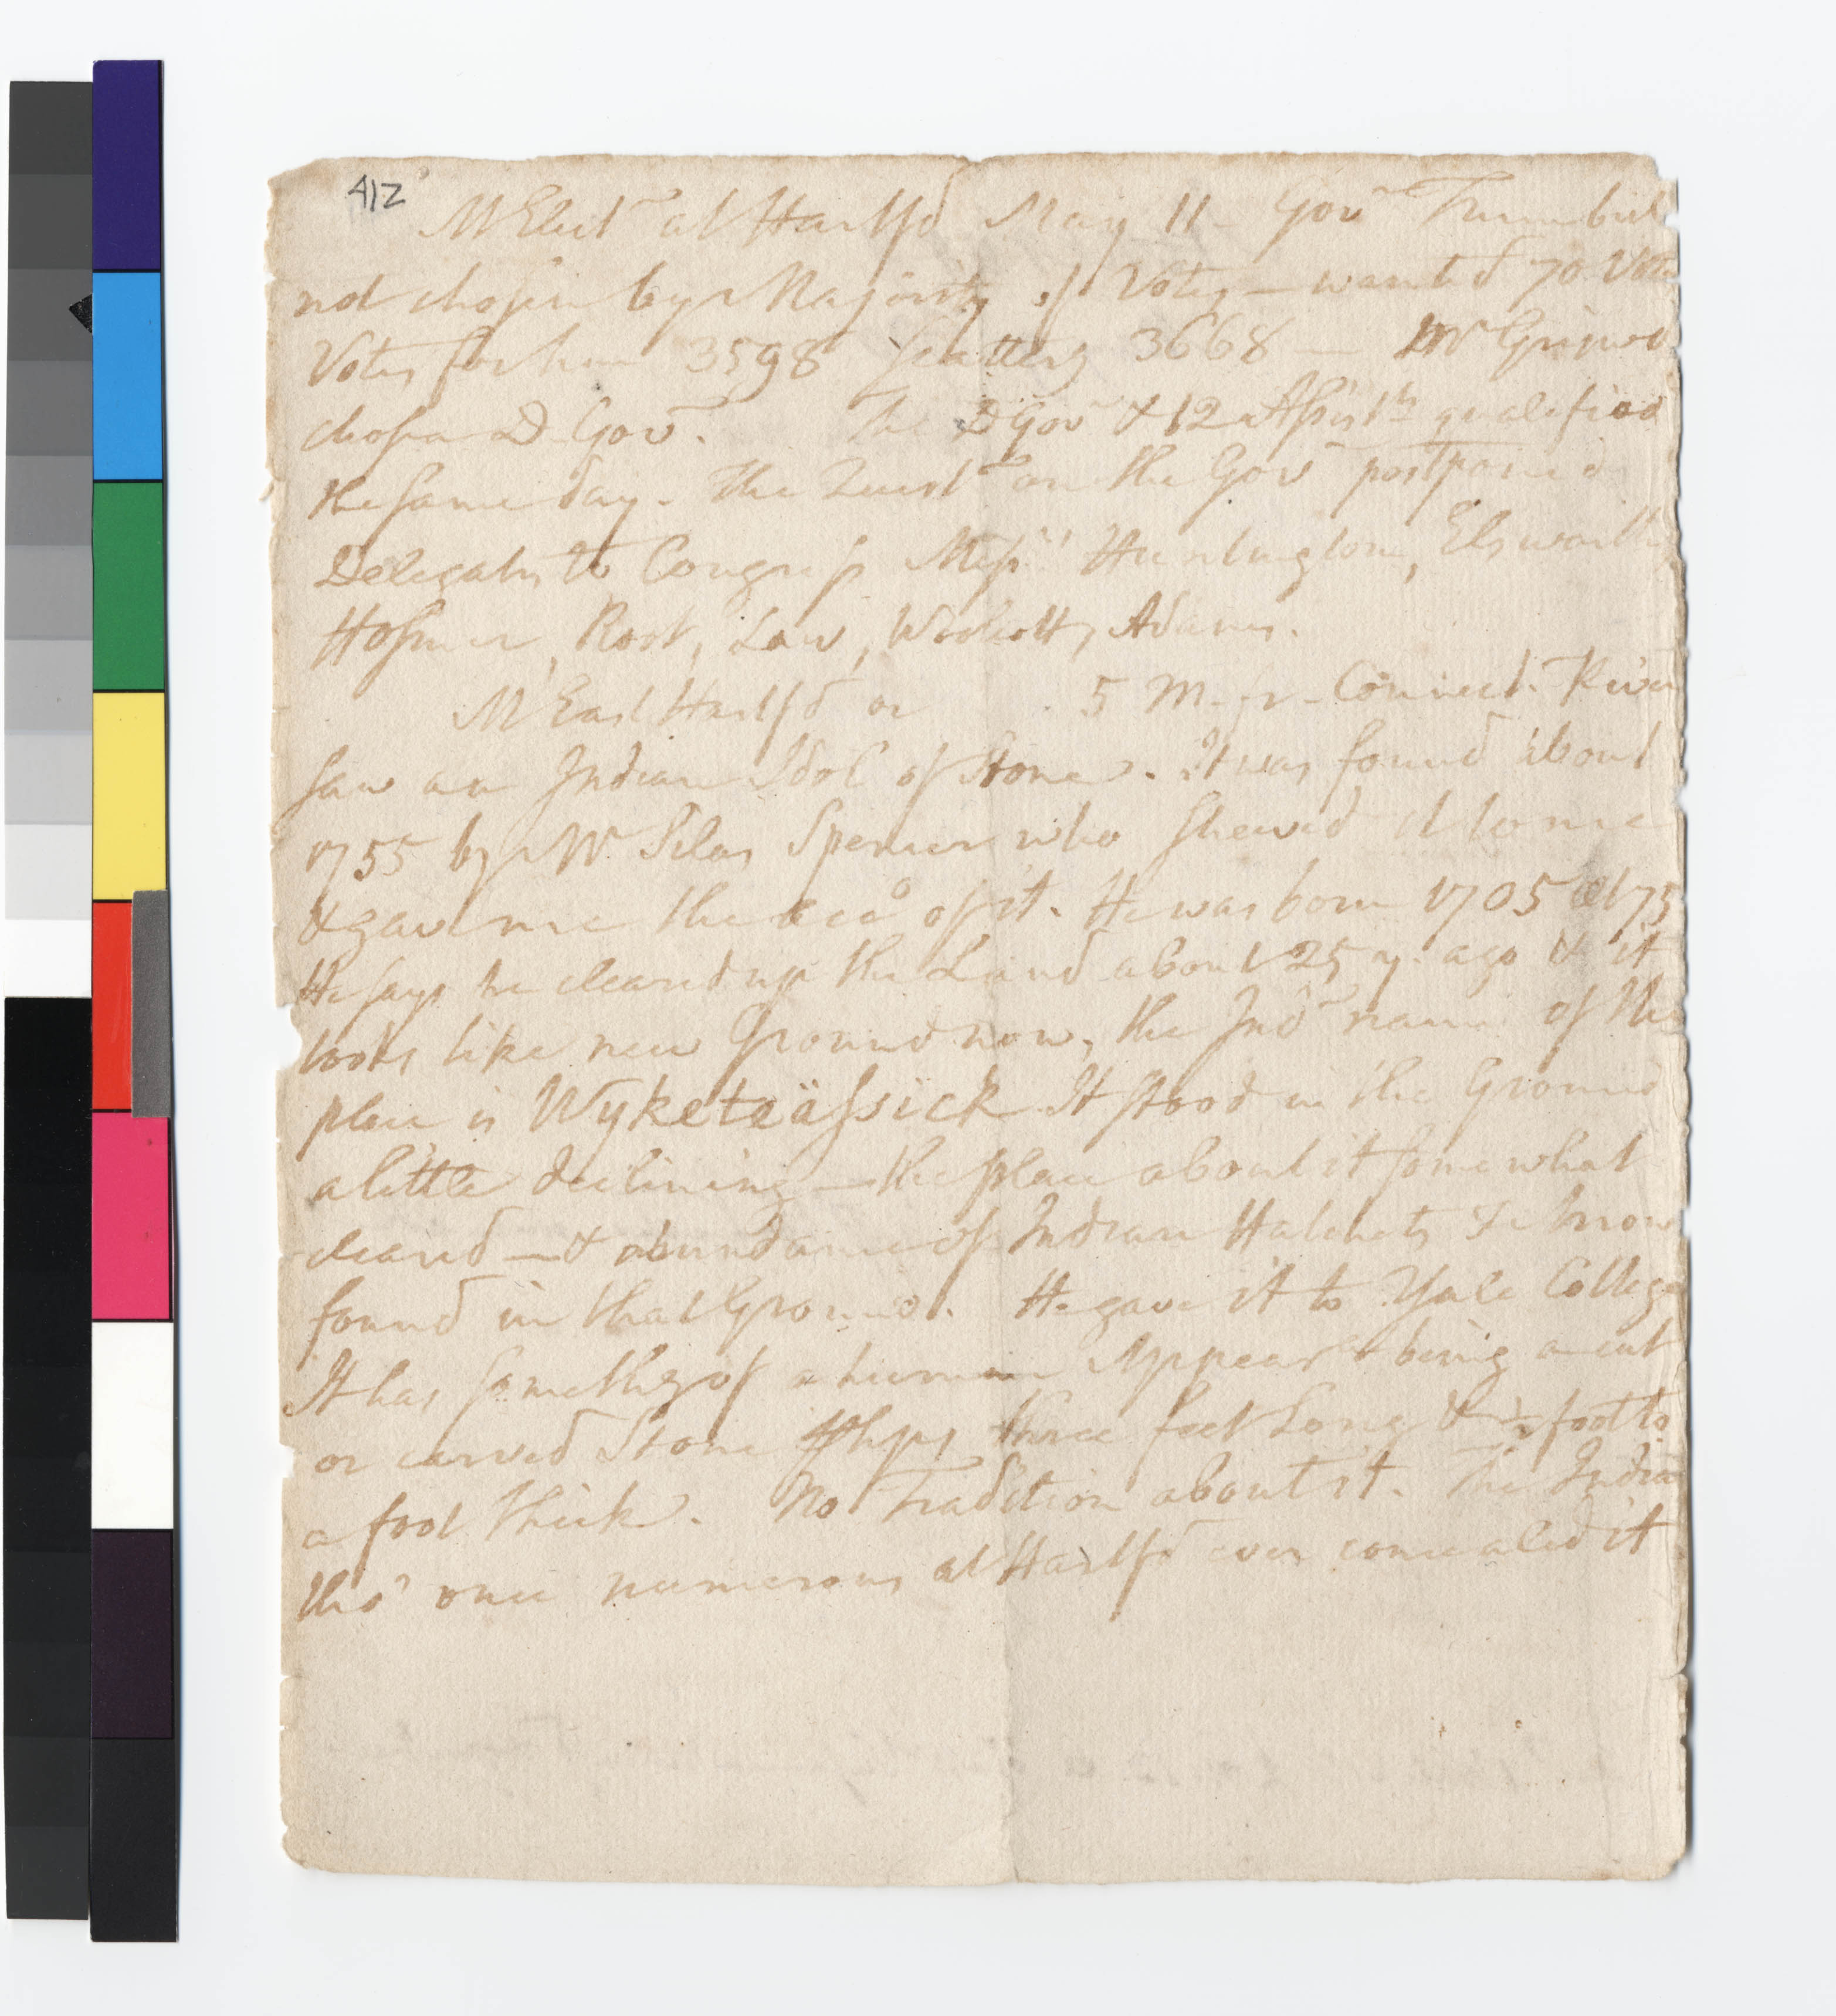 412
At Elect~ at Hartfd May 11 - Gov~ Trumbul
not chosen by Majority of Votes — wanted 70. Votes
Votes for him 3598 Scatterg 3668 — Mr Griswd
chosen D. Gov~. The D Gov~ & 12 Assistts qualified
the same day. The Quest~ on the Gov~ postponed
Delegates to Congress Messrs Huntington, Elsworth,
Hosmer, Root, Law, Wolcott, Adams.
At East Hartfd or 5 M. fr. Connect. River
saw an Indian Idol of Stone. It was found about
1755 by Mr Silas Spencer who shewed it to me
& gave me the acco of it. He was born 1705 aet 75
He says he cleared up the Land about 25 y. ago & it
looks like new Ground now, the Ind~ name of the
place is Wyketaässick It stood in the Ground
a little declining — the place about it somewhat
cleared — & abundance of Indian Hatchets &c now
found in that Ground. He gave it to Yale College
It has somethg of a human Appeara being a cut
or carved Stone phps three feet Long & ½ foot to
a foot thick. No Tradition about it. The Indians
tho' once numerous at Hartfd ever concealed it